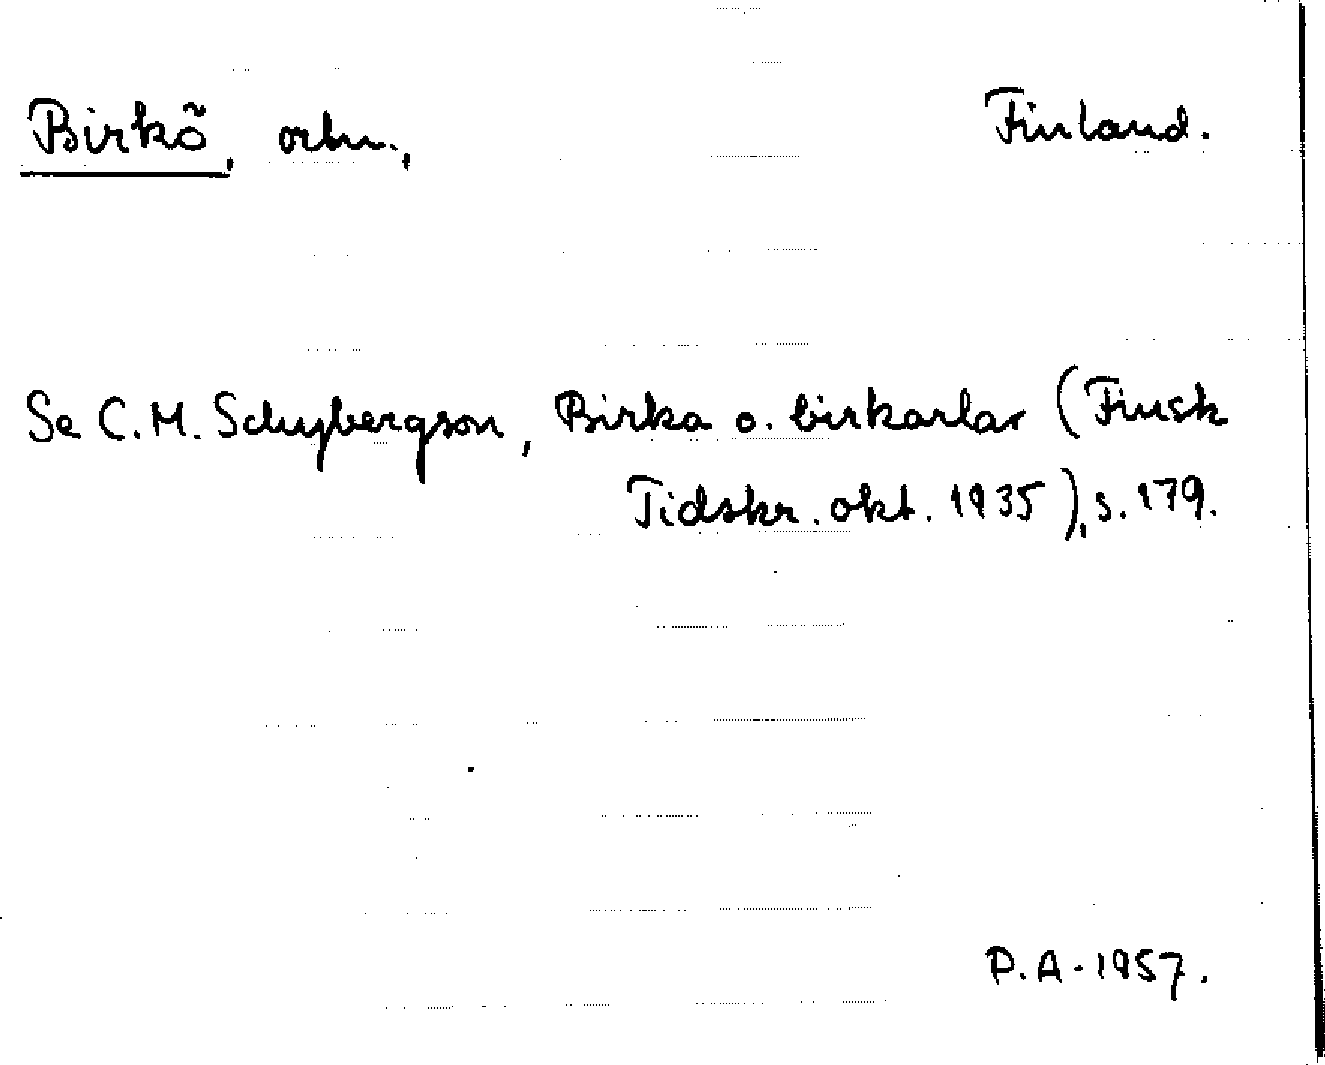 Birkö, ortn., Finland.
Se C. M. Schybergson, Birka o. birkarlar (Finsk
Tidskr. okt. 1935), s. 179.
P.A. 1957.